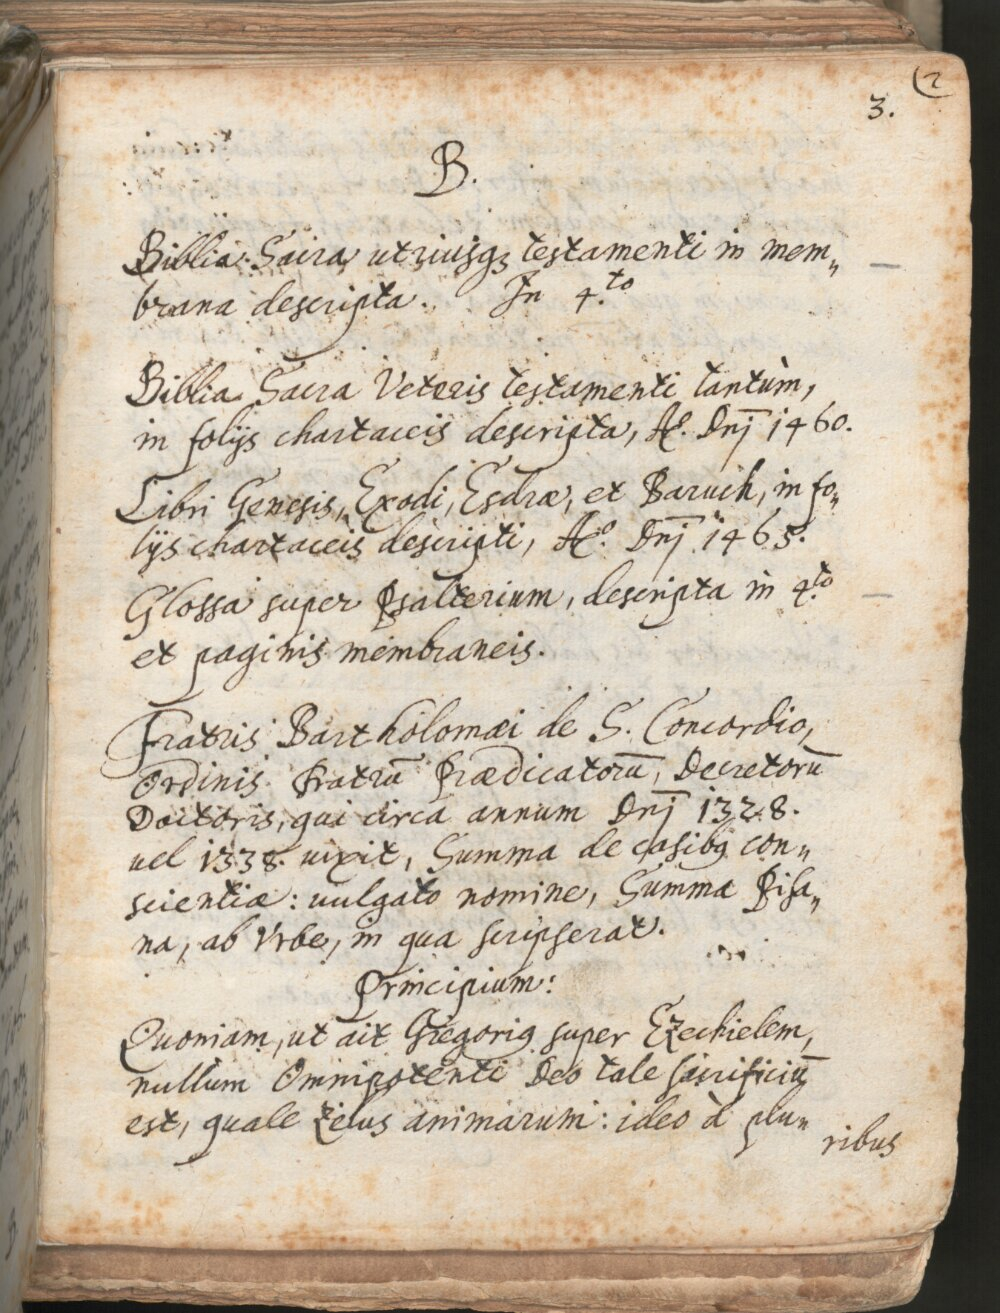 (2
3.
B.
Biblia Sacra utriusq; testamenti in mem„
brana descripta. In 4.to
Biblia Sacra Veteris testamenti tantùm,
in folijs chartaceis descripta, Aº. Dnj̄ 1460.
Libri Genesis, Exodi, Esdræ, et Baruch, in fo„
lijs chartaceis descripti, Aº. Dnj̄ 1465.
Glossa super Psalterium, descripta in 4.to
et paginis membraneis.
Fratris Bartholomæi de S. Concordio,
Ordinis Fratrū Prædicatorū, Decretorū
Doctoris, qui circa annum Dnj̄ 1328.
uel 1338. uixit, Summa de casibꝰ con„
scientiæ: uulgato nomine, Summa Pisa„
na, ab Vrbe, in qua scripserat.
Principium:
Quoniam, ut ait Gregoriꝰ super Ezechielem,
nullum Omnipotenti Deo tale sacrificiū
est, quale zelus animarum: ideo à plu„
ribus